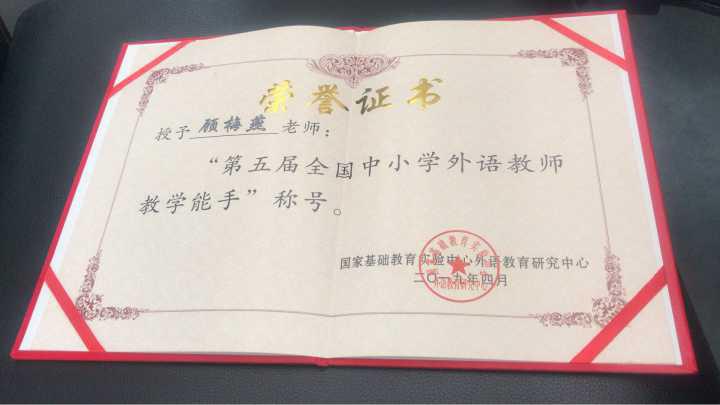 荣誉证书
授予 顾梅燕 老师：
“第五届全国中小学外语教师
教学能手”称号。
国家基础教育实验中心外语教育研究中心
二〇一九年四月
外语教育研究中心